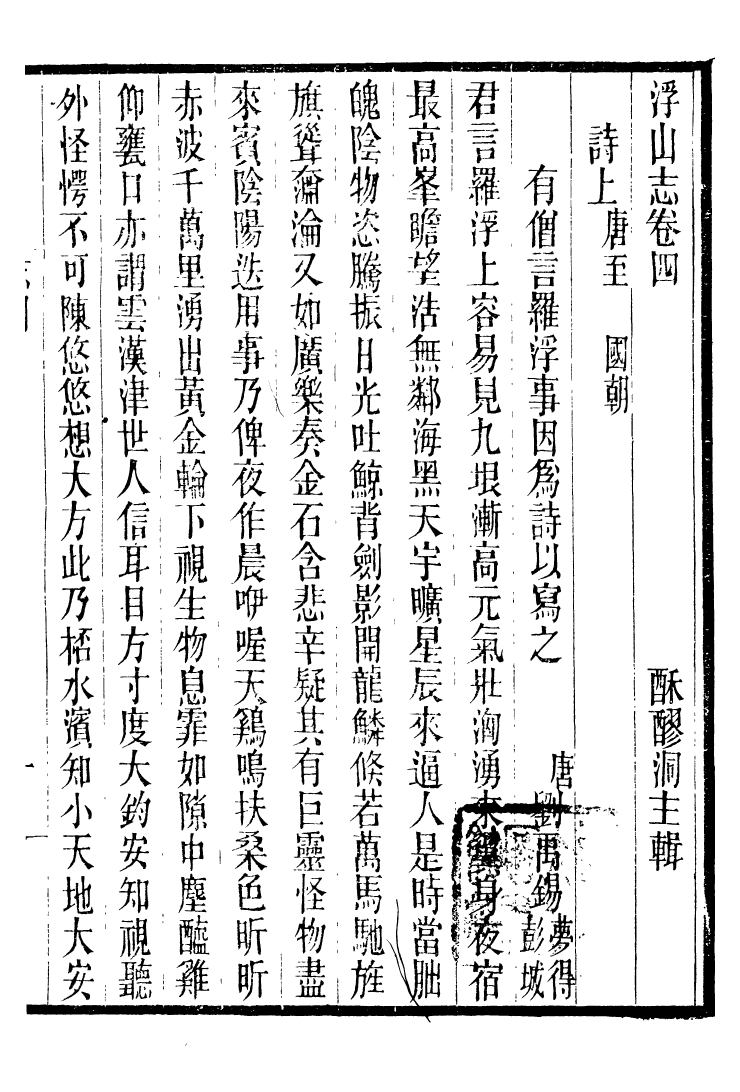 浮山志卷四　酥醪洞主輯
詩上　唐至　國朝
有僧言羅浮事因爲詩以寫之　唐劉禹錫　夢得　彭城
君言羅浮上容易見九垠漸高元氣壯洶湧來翼身夜宿
最高峯瞻望浩無鄰海黑天宇曠星辰來逼人是時當朏
魄陰物恣騰振日光吐鯨背劍影開龍鱗倐若萬馬馳旌
旗聳奫淪又如廣樂奏金石含悲辛疑其有巨靈怪物盡
來賓陰陽迭用事乃俾夜作晨咿喔天鷄鳴扶桑色昕昕
赤波千萬里湧出黃金輪下視生物息霏如隙中塵醯雞
仰甕口亦謂雲漢津世人信耳目方寸度大鈞安知視聽
外怪愕不可陳悠悠想大方此乃桮水濱知小天地大安